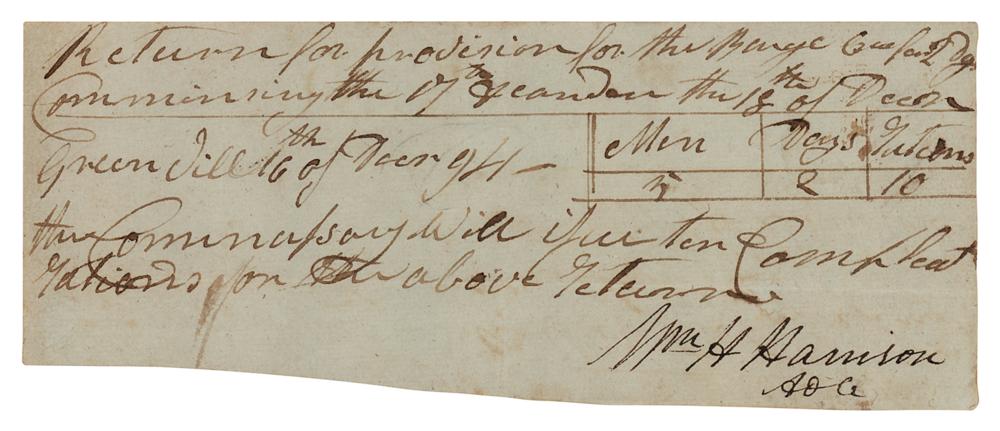 Return for provision for the Barge Crue for 2 Dys
Comminsing the 17th & eanden the 18th of Decm
Green Vill 16th of Decr 94
Men Days Rations
5 2 10
the Commassary Will isue ten Compleat
Rations for the above Return
Wm H Harrison
ADC